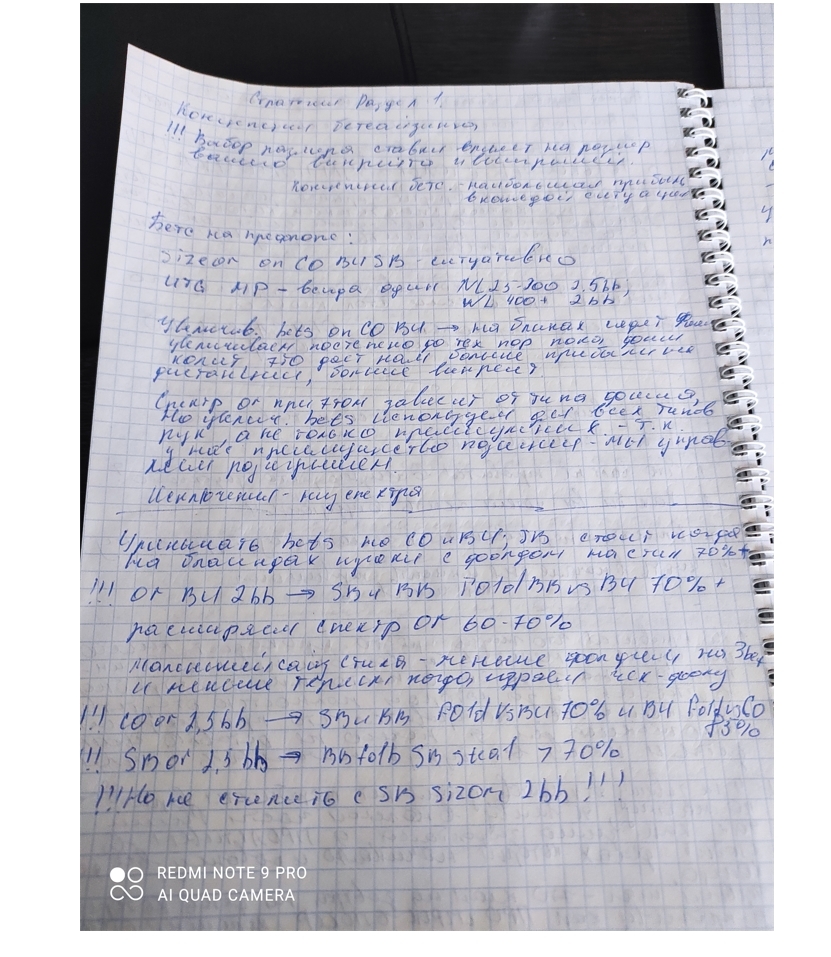 Стратегия Раздел 1.
Концепция бетсайзинга
!!! Выбор размера ставки влияет на размер
вашего винрейта и выигрышей.
Концепция бетс. - наибольшая прибыль
в каждой ситуации
Бетс на префлопе:
Size or on CO BU SB - ситуативно
UTG MP - всегда один NL 25-200 2,5bb,
NL 400+ 2bb
Увелич. bets on CO BU → на блинах сидят
увеличиваем постепено до тех пор пока донк
колит это даст нам больше прибыли на
дистанции, больше винрейт
Спектр or при этом зависит от типа донка,
но увелич. bets используем для всех типов
рук, а не только премиумных. - т.к.
у нас преимущество позиции - мы управ-
ляем розыгрышем.
Исключения - низ спектра
Уменьшать bets на CO и BU, SB стоит когда
на блайндах игроки с фолдом на стил 70%+
!!! or BU 2bb → SB и BB Fold BB vs BU 70%+
расширяем спектр or 60-70%
Маленький сайз стила - меньше фолдуем на 3bet
и меньше теряем когда играем чек-фолд
!!! CO or 2,5bb → SB и BB FOld vs BU 70% и BU Fold vs CO
%
!!! SB or 2,5bb → BB fold SB steal > 70%
!!! Но не стилить с SB sizom 2bb!!!
REDMI NOTE 9 PRO
AI QUAD CAMERA